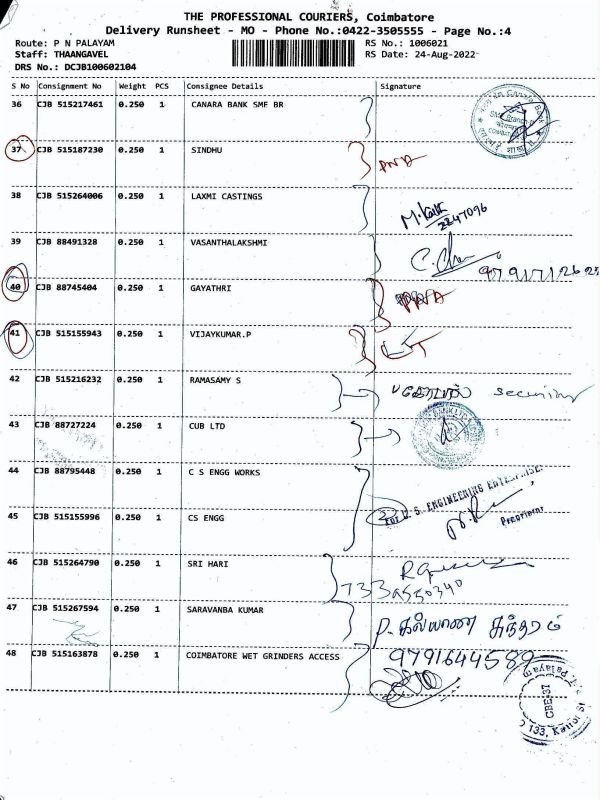 THE PROFESSIONAL COURIERS, Coimbatore
Delivery Runsheet - MO - Phone No.:0422-3505555 - Page No.:4
Route: P N PALAYAM RS No.: 1006021
Staff: THAANGAVEL RS Date: 24-Aug-2022
DRS No.: DCJB100602104
S No Consignment No Weight PCS Consignee Details Signature
36 CJB 515217461 0.250 1 CANARA BANK SME BR
37 CJB 515187230 0.250 1 SINDHU
38 CJB 515264006 0.250 1 LAXMI CASTINGS
2247096
39 CJB 88491328 0.250 1 VASANTHALAKSHMI
40 CJB 88745404 0.250 1 GAYATHRI
41 CJB 515155943 0.250 1 VIJAYKUMAR.P
42 CJB 515216232 0.250 1 RAMASAMY S security
43 CJB 88727224 0.250 1 CUB LTD
44 CJB 88795448 0.250 1 C S ENGG WORKS
ENGINEERING ENTERPRISE.
45 CJB 515155996 0.250 1 CS ENGG Proprietor
46 CJB 515264790 0.250 1 SRI HARI
47 CJB 515267594 0.250 1 SARAVANBA KUMAR P. கல்யாண சுந்தரம்
48 CJB 515163878 0.250 1 COIMBATORE WET GRINDERS ACCESS 9791644589
CBE-37